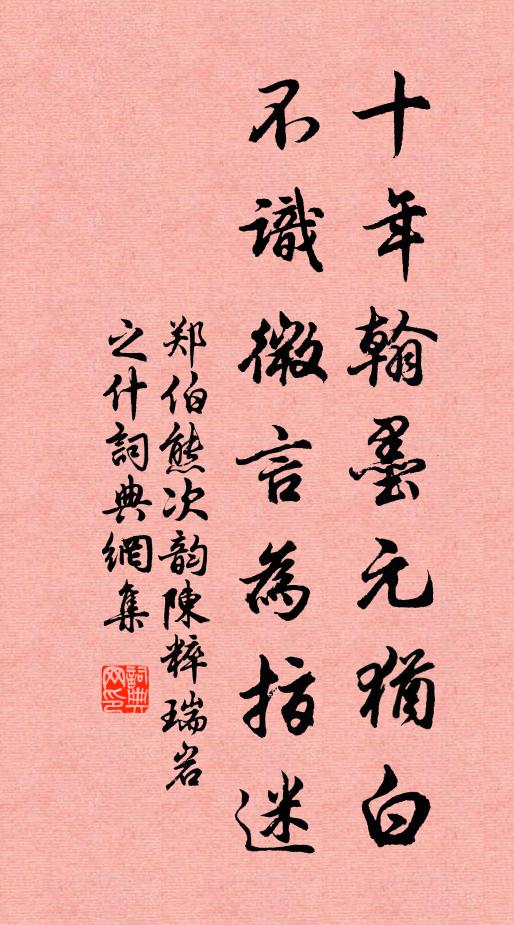 十年翰墨元猶白
不識微言為指迷
郑伯熊次韵陳粹瑞岩
之什詞典網集
詞典
网印